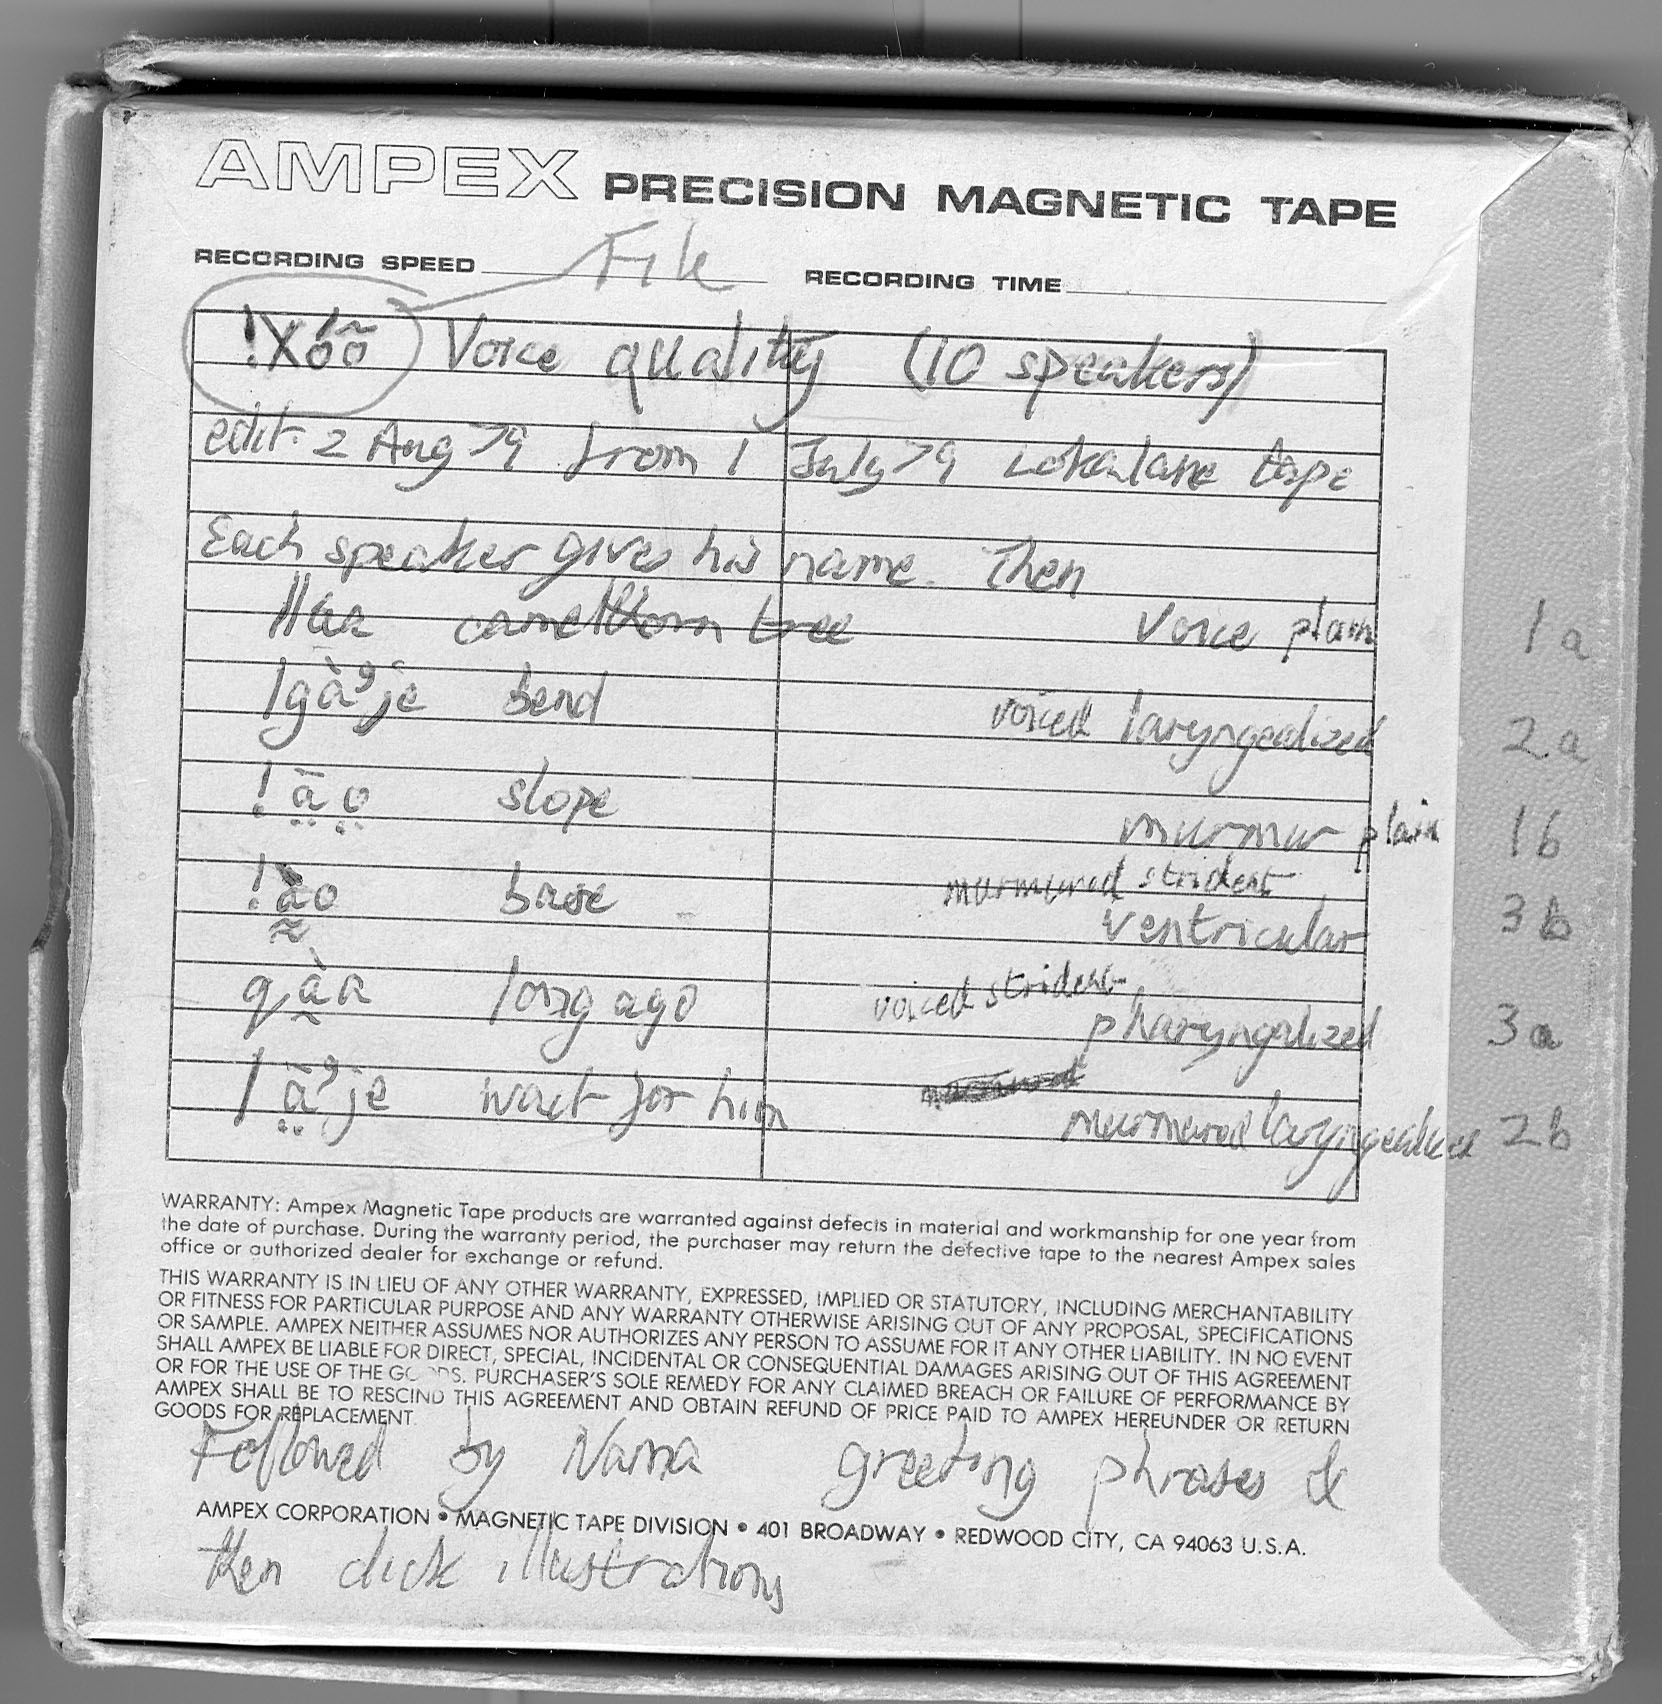 AMPEX PRECISION MAGNETIC TAPE
File
RECORDING SPEED RECORDING TIME
!Xóõ Voice quality (10 speakers)
edit 2 Aug 79 from 1 July 79 Lokalane tape
Each speaker gives his name. Then
ǁaa camelthorn tree Voice plain 1a
|gàˀje bend voiced laryngealized 2a
!a̤̅o̤ slope murmur plain 1b
murmured strident
!à̰o base ventricular 3b
voiced strident
qà̰a long ago pharyngalized 3a
|a̤̅ˀje wait for him murmured laryngealized 2b
WARRANTY: Ampex Magnetic Tape products are warranted against defects in material and workmanship for one year from
the date of purchase. During the warranty period, the purchaser may return the defective tape to the nearest Ampex sales
office or authorized dealer for exchange or refund.
THIS WARRANTY IS IN LIEU OF ANY OTHER WARRANTY, EXPRESSED, IMPLIED OR STATUTORY, INCLUDING MERCHANTABILITY
OR FITNESS FOR PARTICULAR PURPOSE AND ANY WARRANTY OTHERWISE ARISING OUT OF ANY PROPOSAL, SPECIFICATIONS
OR SAMPLE. AMPEX NEITHER ASSUMES NOR AUTHORIZES ANY PERSON TO ASSUME FOR IT ANY OTHER LIABILITY. IN NO EVENT
SHALL AMPEX BE LIABLE FOR DIRECT, SPECIAL, INCIDENTAL OR CONSEQUENTIAL DAMAGES ARISING OUT OF THIS AGREEMENT
OR FOR THE USE OF THE GOODS. PURCHASER'S SOLE REMEDY FOR ANY CLAIMED BREACH OR FAILURE OF PERFORMANCE BY
AMPEX SHALL BE TO RESCIND THIS AGREEMENT AND OBTAIN REFUND OF PRICE PAID TO AMPEX HEREUNDER OR RETURN
GOODS FOR REPLACEMENT.
Followed by Nama greeting phrases &
AMPEX CORPORATION • MAGNETIC TAPE DIVISION • 401 BROADWAY • REDWOOD CITY, CA 94063 U.S.A.
then click illustrations